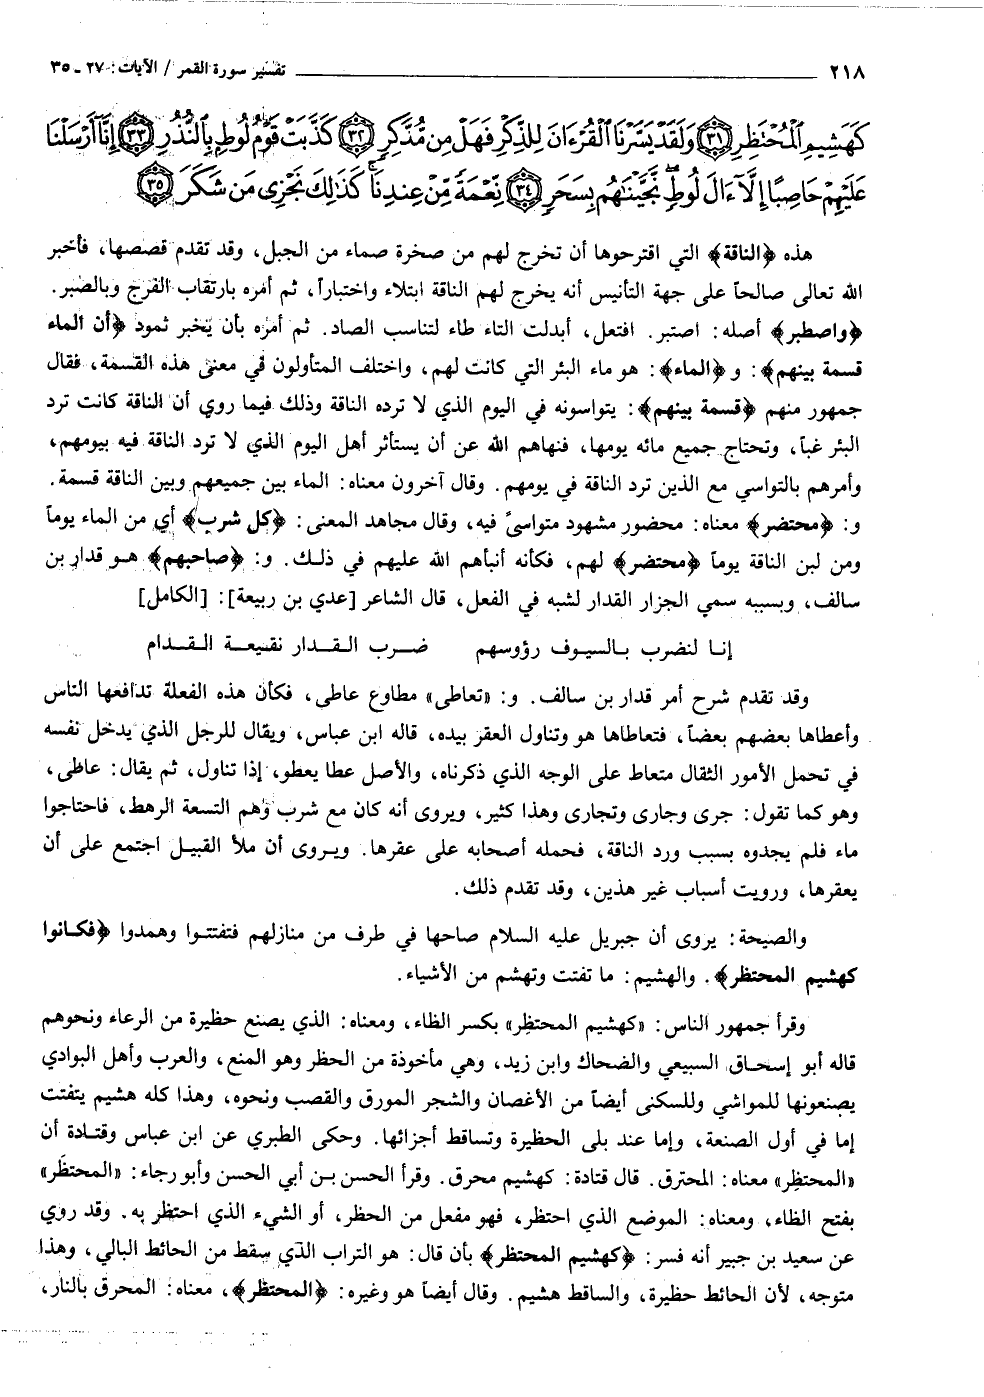 ٢١٨ تفسير سورة القمر / الآيات: ٢٧ - ٣٥
كَهَشِيمِ ٱلْمُحْتَظِرِ ﴿٣١﴾ وَلَقَدْ يَسَّرْنَا ٱلْقُرْءَانَ لِلذِّكْرِ فَهَلْ مِن مُّدَّكِرٍ ﴿٣٢﴾ كَذَّبَتْ قَوْمُ لُوطٍۭ بِٱلنُّذُرِ ﴿٣٣﴾ إِنَّآ أَرْسَلْنَا
عَلَيْهِمْ حَاصِبًا إِلَّآ ءَالَ لُوطٍ ۖ نَّجَّيْنَٰهُم بِسَحَرٍ ﴿٣٤﴾ نِّعْمَةً مِّنْ عِندِنَا ۚ كَذَٰلِكَ نَجْزِى مَن شَكَرَ ﴿٣٥﴾
هذه ﴿الناقة﴾ التي اقترحوها أن تخرج لهم من صخرة صماء من الجبل، وقد تقدم قصصها، فأخبر
الله تعالى صالحاً على جهة التأنيس أنه يخرج لهم الناقة ابتلاء واختباراً، ثم أمره بارتقاب الفرج وبالصبر.
﴿واصطبر﴾ أصله: اصتبر. افتعل، أبدلت التاء طاء لتناسب الصاد. ثم أمره بأن يخبر ثمود ﴿أن الماء
قسمة بينهم﴾: و ﴿الماء﴾: هو ماء البئر التي كانت لهم، واختلف المتأولون في معنى هذه القسمة، فقال
جمهور منهم ﴿قسمة بينهم﴾: يتواسونه في اليوم الذي لا ترده الناقة وذلك فيما روي أن الناقة كانت ترد
البئر غباً، وتحتاج جميع مائه يومها، فنهاهم الله عن أن يستأثر أهل اليوم الذي لا ترد الناقة فيه بيومهم،
وأمرهم بالتواسي مع الذين ترد الناقة في يومهم. وقال آخرون معناه: الماء بين جميعهم وبين الناقة قسمة.
و: ﴿محتضر﴾ معناه: محضور مشهود متواسىً فيه، وقال مجاهد المعنى: ﴿كل شرب﴾ أي من الماء يوماً
ومن لبن الناقة يوماً ﴿محتضر﴾ لهم، فكأنه أنبأهم الله عليهم في ذلك. و: ﴿صاحبهم﴾ هو قدار بن
سالف، وبسببه سمي الجزار القدار لشبه في الفعل، قال الشاعر [عدي بن ربيعة]: [الكامل]
إنا لنضرب بالسيوف رؤوسهم ضرب القدار نقيعة القدام
وقد تقدم شرح أمر قدار بن سالف. و: «تعاطى» مطاوع عاطى، فكأن هذه الفعلة تدافعها الناس
وأعطاها بعضهم بعضاً، فتعاطاها هو وتناول العقر بيده، قاله ابن عباس، ويقال للرجل الذي يدخل نفسه
في تحمل الأمور الثقال متعاط على الوجه الذي ذكرناه، والأصل عطا يعطو، إذا تناول، ثم يقال: عاطى،
وهو كما تقول: جرى وجارى وتجارى وهذا كثير، ويروى أنه كان مع شرب وهم التسعة الرهط، فاحتاجوا
ماء فلم يجدوه بسبب ورد الناقة، فحمله أصحابه على عقرها. ويروى أن ملأ القبيل اجتمع على أن
يعقرها، ورويت أسباب غير هذين، وقد تقدم ذلك.
والصيحة: يروى أن جبريل عليه السلام صاحها في طرف من منازلهم فتفتتوا وهمدوا ﴿فكانوا
كهشيم المحتظر﴾. والهشيم: ما تفتت وتهشم من الأشياء.
وقرأ جمهور الناس: «كهشيم المحتظِر» بكسر الظاء، ومعناه: الذي يصنع حظيرة من الرعاء ونحوهم
قاله أبو إسحاق السبيعي والضحاك وابن زيد، وهي مأخوذة من الحظر وهو المنع، والعرب وأهل البوادي
يصنعونها للمواشي وللسكنى أيضاً من الأغصان والشجر المورق والقصب ونحوه، وهذا كله هشيم يتفتت
إما في أول الصنعة، وإما عند بلى الحظيرة وتساقط أجزائها. وحكى الطبري عن ابن عباس وقتادة أن
«المحتظِر» معناه: المحترق. قال قتادة: كهشيم محرق. وقرأ الحسن بن أبي الحسن وأبو رجاء: «المحتظَر»
بفتح الظاء، ومعناه: الموضع الذي احتظر، فهو مفعل من الحظر، أو الشيء الذي احتظر به. وقد روي
عن سعيد بن جبير أنه فسر: ﴿كهشيم المحتظر﴾ بأن قال: هو التراب الذي سقط من الحائط البالي، وهذا
متوجه، لأن الحائط حظيرة، والساقط هشيم. وقال أيضاً هو وغيره: ﴿المحتظر﴾، معناه: المحرق بالنار،